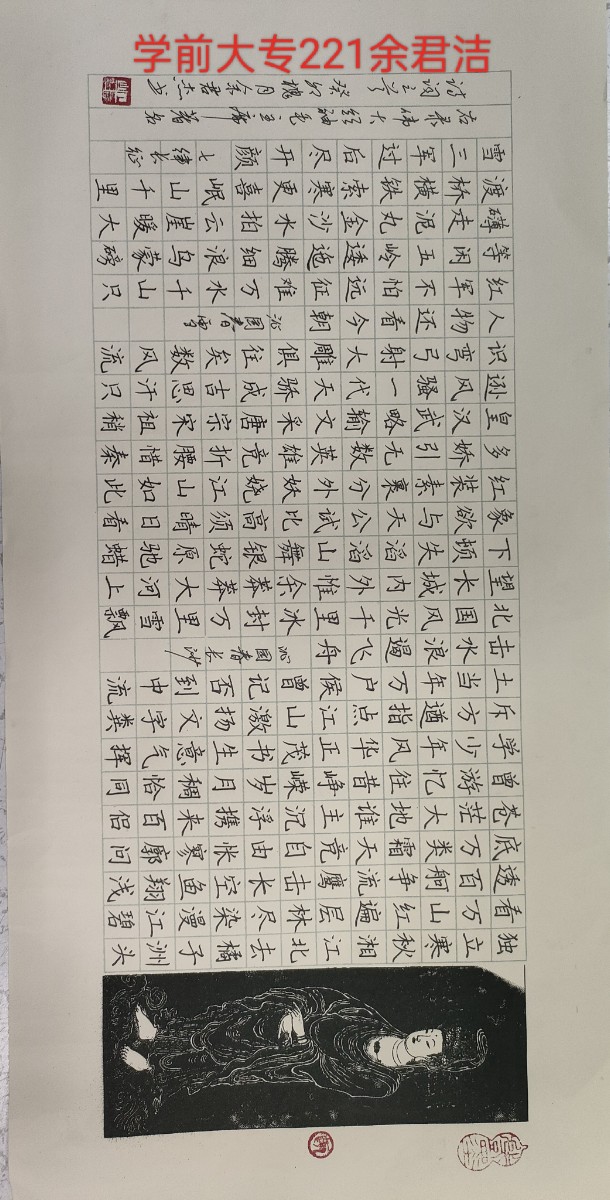 学前大专221余君洁
独立寒秋湘江北去橘子洲头
看万山红遍层林尽染漫江碧
透百舸争流鹰击长空鱼翔浅
底万类霜天竞自由怅寥廓问
苍茫大地谁主沉浮携来百侣
曾游忆往昔峥嵘岁月稠恰同
学少年风华正茂书生意气挥
斥方遒指点江山激扬文字粪
土当年万户侯曾记否到中流
击水浪遏飞舟 沁园春长沙
北国风光千里冰封万里雪飘
望长城内外惟余莽莽大河上
下顿失滔滔山舞银蛇原驰蜡
象欲与天公试比高须晴日看
红装素裹分外妖娆江山如此
多娇引无数英雄竞折腰惜秦
皇汉武略输文采唐宗宋祖稍
逊风骚一代天骄成吉思汗只
识弯弓射大雕俱往矣数风流
人物还看今朝 沁园春雪
红军不怕远征难万水千山只
等闲五岭逶迤腾细浪乌蒙磅
礴走泥丸金沙水拍云崖暖大
渡桥横铁索寒更喜岷山千里
雪三军过后尽开颜 七律长征
右录伟大领袖毛主席著名
诗词三首 癸卯槐月余君洁书